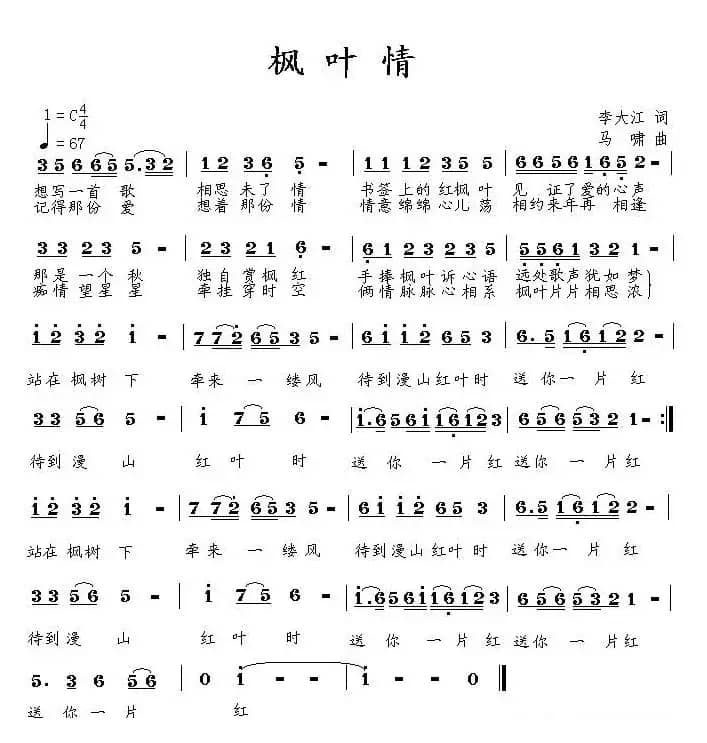 枫叶情
1=C4/4
李大江 词
♩=67
马啸 曲
3 5 6 6 5 5.3 2 | 1 2 3 6 5 - | 1 1 1 2 3 6 5 | 6 6 5 6 1 6 5 -
想写一首歌 相思未了情 书签上的红枫叶 见证了爱的心声
记得那份爱 想着那份情 情意绵绵心儿荡 相约来年再相逢
3 3 2 3 5 - | 2 2 3 1 6 - | 6 1 2 3 5 2 3 | 5 5 6 1 2 2 -
那是一个秋 独自赏枫红 手捧枫叶诉心语 远处歌声犹如梦
痴情望星星 牵挂穿时空 俩情脉脉心相系 枫叶片片相思浓
1 2 3 2 1 - | 7 7 2 6 5 3 5 - | 6 1 2 1 2 6 5 3 | 6. 5 1 6 1 2 2 -
站在枫树下 牵来一缕风 待到漫山红叶时 送你一片红
3 3 5 6 5 - | 1 7 5 6 - | 1.6 5 6 1 1 6 1 2 3 | 6 5 6 5 3 2 1 - :‖
待到漫山 红叶时 送你一片红 送你一片红
1 2 3 2 1 - | 7 7 2 6 5 3 5 - | 6 1 2 1 2 6 5 3 | 6. 5 1 6 1 2 2 -
站在枫树下 牵来一缕风 待到漫山红叶时 送你一片红
3 3 5 6 5 - | 1 7 5 6 - | 1.6 5 6 1 1 6 1 2 3 | 6 5 6 5 3 2 1 -
待到漫山 红叶时 送你一片红 送你一片红
5. 3 6 5 6 | 0 1 - | 1 - - 0 ‖
送你一片 红